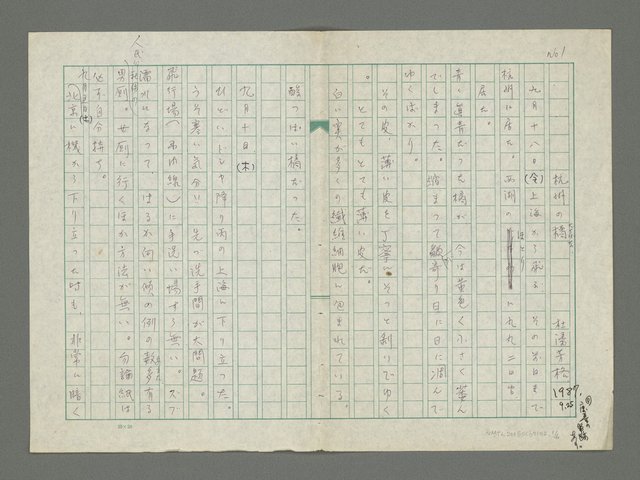 No 1
杭州の橘
杜潘芳格
1987.
9.25
九月十八日(金)上海から発る その前日まで
杭州に居た。西湖のほとりに九九二日も
居た。
青く真青だった橘が 今は黄色く小さく萎ん
でしまった。縮まって皺寄り日に日に凋んで
ゆくばかり。
その皮、薄い皮を丁寧にそっと剥いでゆく
。とてもとても薄い皮だ。
白い実が多くの繊維細胞に包まれている。
酸っぱい橘だった。
九月十日、(木)
ひどいドシャ降り雨の上海に下り立った。
うそ寒い気分に 先づ洗手間が大問題。
飛行場(国内線)に手洗い場すら無い。ズブ
濡れになって、はるか向い側の
男厠、女厠に行くほか方法が無い。勿論紙は
必ず自分持ち。
北京に機から下り立った時も 非常に暗く
20×20